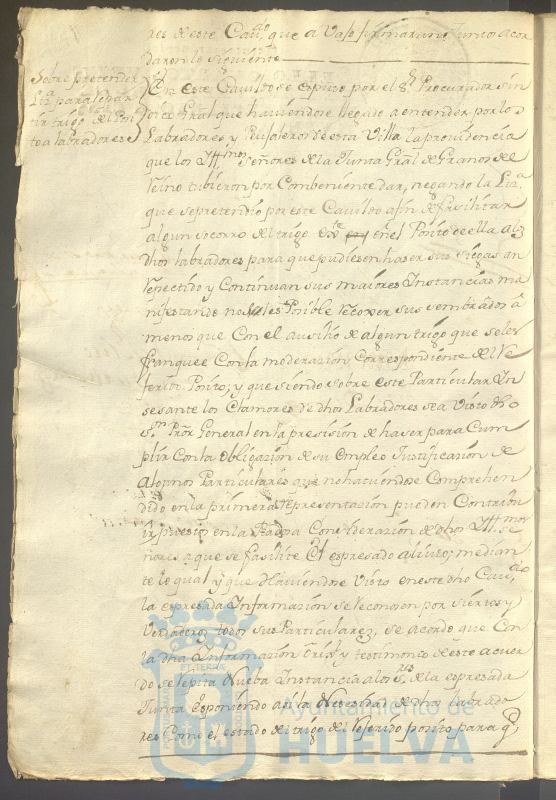 res de este Cavdo que a vajo firmaran Juntos Acor
daron lo siguiente
Sobre pretender
Liza para repar
tir trigo del Posi
to a labradores
En este Cavildo se expuso por el Sr Procurador Sin
dico Gral que haviendose llegado a entender por los
Labradores y Pujaleros de esta Villa la providencia
que los Yttmos Señores de la Junta Gral de Granos del
Reino tubieron por Combeniente dar, negando la Liza
que se pretendio por este Cavildo a fin de facilitar
algun socorro del trigo en el Posito de ella a los
dhos labradores para que pudiesen haser sus siegas an
repetido y Continuan sus maiores Instancias ma
nifestando no les es Posible recoxer sus sembrados a
menos que Con el ausilio de algun trigo que se les
franquee Con la moderazion Correspondiente del Re
ferido Posito, y que siendo sobre este Particular In
sesantes los Clamores de dhos Labradores se a visto dho
Sr Pror General en la presision de haser para Cum
plir Con la obligazion de su empleo Justificazion de
algunos Particulares que no haviendose Comprehen
dido en la primera representazion pueden Contribu
ir en la Considerazion de dhos Yttmos Se
ñores a que se facilite el expresado alivio; median
te lo qual y que haviendose visto en este dho Cavdo
la expresada Informazion se reconosen por siertos y
verdaderos todos sus Particulares, se acordo que Con
la dha Informazion y testimonio de este acuer
do se repita Nueba Instancia a los Sres de la expresada
Junta Exponiendo asi la Necesidad de dhos labrado
res Como el estado del trigo del Referido posito para q
Ayuntamiento de
HUELVA